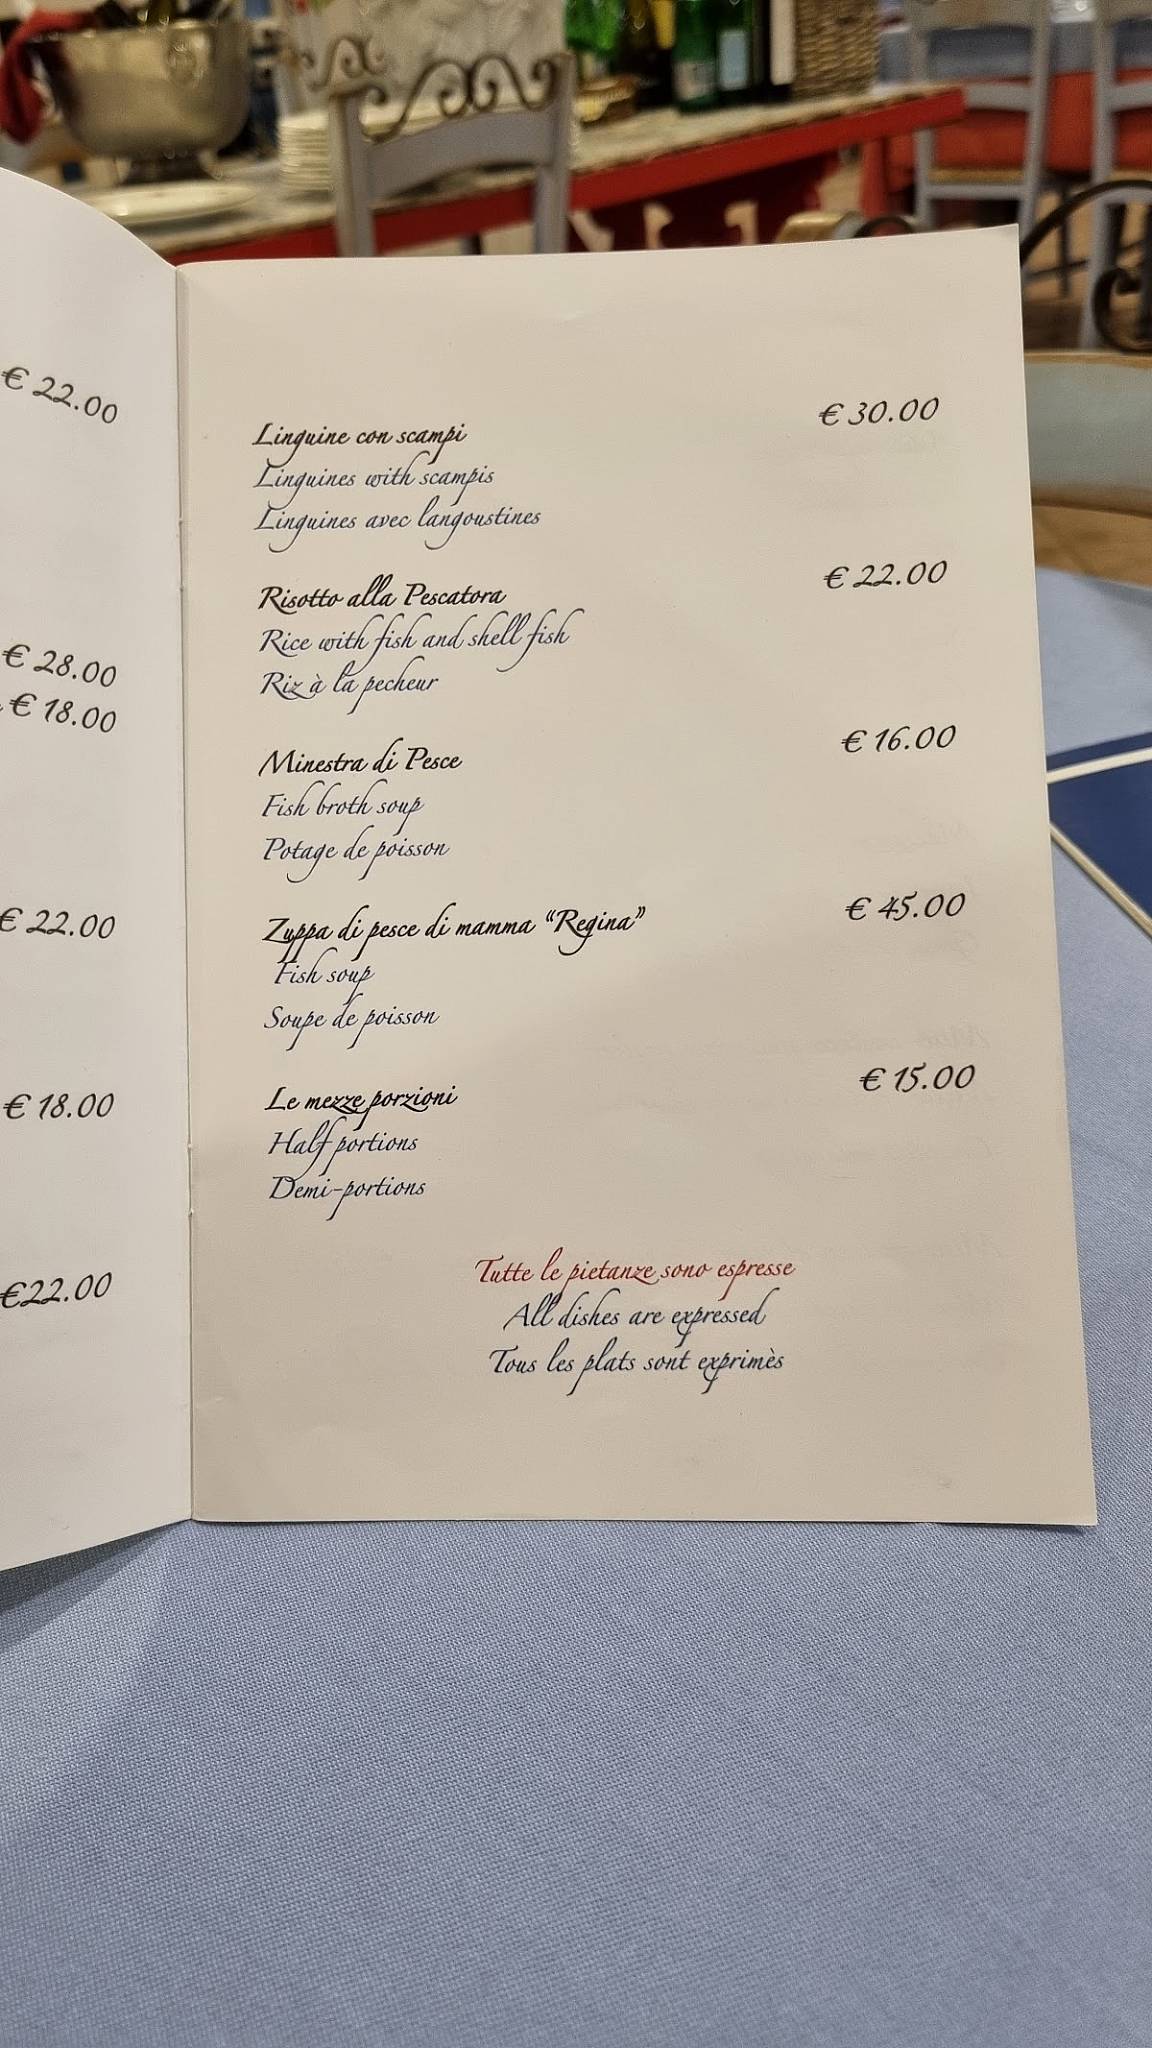 € 22.00
€ 28.00
€ 18.00
€ 22.00
€ 18.00
€22.00
Linguine con scampi € 30.00
Linguines with scampis
Linguines avec langoustines
Risotto alla Pescatora € 22.00
Rice with fish and shell fish
Riz à la pecheur
Minestra di Pesce € 16.00
Fish broth soup
Potage de poisson
Zuppa di pesce di mamma “Regina” € 45.00
Fish soup
Soupe de poisson
Le mezze porzioni € 15.00
Half portions
Demi-portions
Tutte le pietanze sono espresse
All dishes are expressed
Tous les plats sont exprimès